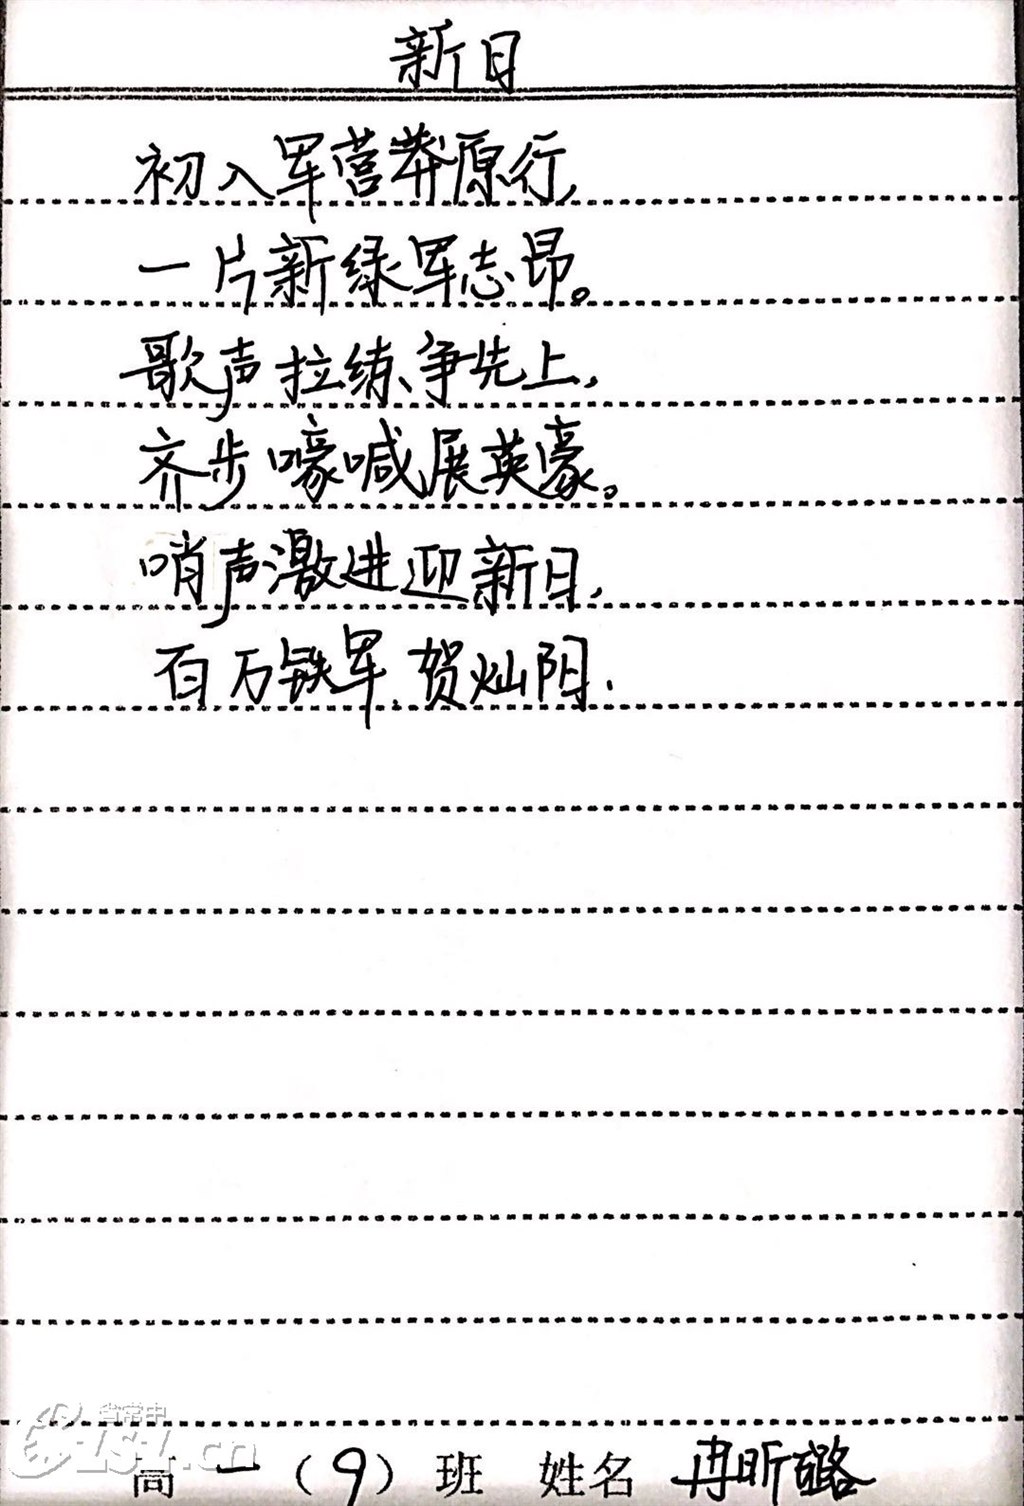 新日
初入军营莽原行,
一片新绿军志昂。
歌声拉练争先上,
齐步嚎喊展英豪。
哨声激进迎新日,
百万铁军贺灿阳.
省常中
CZSZ.cn
高一(9)班 姓名 冉昕璐